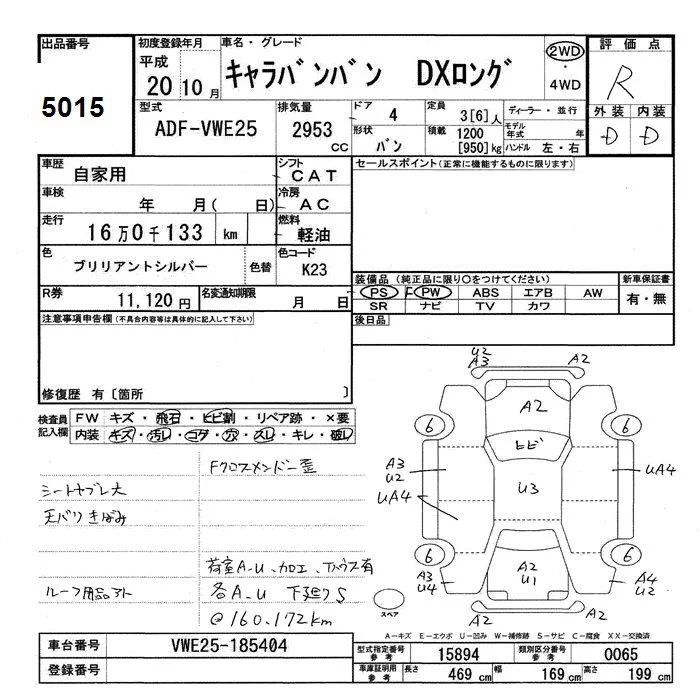 出品番号
5015
初度登録年月
平成
20 10月
車名・グレード
キャラバンバン DXロング
2WD
・
4WD
評価点
R
外装 内装
D D
型式
ADF-VWE25
排気量
2953 cc
ドア 4
形状 バン
定員 3[6]人
積載 1200 [950]kg
ディーラー・並行
モデル年式 年
ハンドル 左・右
車歴
自家用
シフト
CAT
車検
年 月( 日)
冷房
AC
走行
16万0千133 km
燃料
軽油
色
ブリリアントシルバー
色替
色コード
K23
R券
11,120円
名変通知期限
月 日
セールスポイント(正常に機能するものに限ります)
装備品(純正品に限り○をつけてください)
新車保証書
PS PW ABS エアB AW
SR ナビ TV カワ
有・無
後日品
注意事項申告欄(不具合内容等は具体的に記入して下さい)
修復歴 有〔箇所 〕
検査員記入欄
FW キズ・飛石・ヒビ割・リペア跡・×要
内装 キズ・汚レ・コゲ・穴・スレ・キレ・破レ
Fクロスメンバー歪
シートヤブレ大
天バリきばみ
荷室A-U、カロエ、Tハウス有
ルーフ用品アト
各A-U 下廻りS
@160.172km
U2
A3
A2
A2
6
6
ヒビ
A3
U2
UA4
U3
UA4
6
6
A2
U1
A3
U4
A4
U2
A2
A2
スペア
A-キズ E-エクボ U-凹み W-補修跡 S-サビ C-腐食 XX-交換済
車台番号
VWE25-185404
登録番号
型式指定番号 参考
15894
類別区分番号 参考
0065
車庫証明用 参考
長さ 469 cm
幅 169 cm
高さ 199 cm